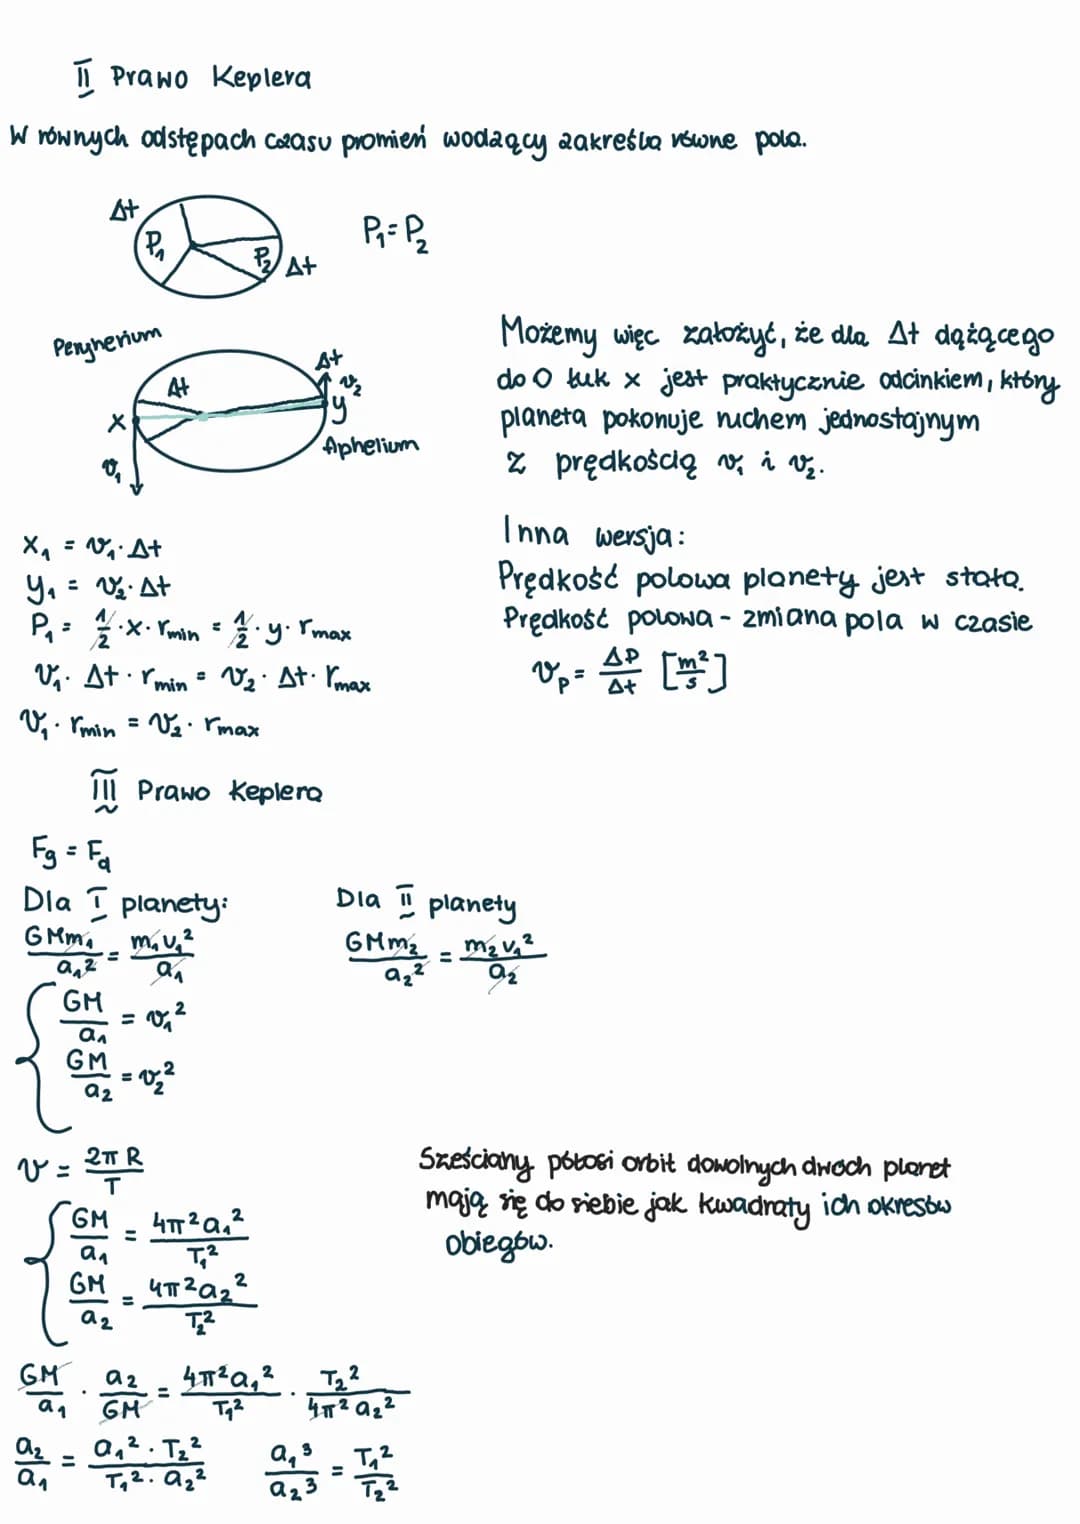 II Prawo Keplera
W równych odstępach czasu promień wodzący zakreśla równe pola.
Δt
P₁
P₂ Δt
P₁ = P₂
Peryhelium
Δt
Δt
v₂
x
y
v₁
Aphelium
Możemy więc założyć, że dla Δt dążącego
do 0 łuk x jest praktycznie odcinkiem, który
planeta pokonuje ruchem jednostajnym
z prędkością v₁ i v₂.
x₁ = v₁ · Δt
y₁ = v₂ · Δt
P₁ = 1/2 · x · rmin = 1/2 · y · rmax
v₁ · Δt · rmin = v₂ · Δt · rmax
v₁ · rmin = v₂ · rmax
Inna wersja:
Prędkość polowa planety jest stała.
Prędkość polowa - zmiana pola w czasie
vp = ΔP/Δt [m²/s]
III Prawo Keplera
Fg = Fd
Dla I planety:
GMm₁/a₁² = m₁v₁²/a₁
Dla II planety
GMm₂/a₂² = m₂v₁²/a₂
GM/a₁ = v₁²
GM/a₂ = v₂²
v = 2πR/T
GM/a₁ = 4π²a₁²/T₁²
GM/a₂ = 4π²a₂²/T₂²
Sześciany półosi orbit dowolnych dwóch planet
mają się do siebie jak kwadraty ich okresów
obiegów.
GM/a₁ · a₂/GM = 4π²a₁²/T₁² · T₂²/4π²a₂²
a₂/a₁ = a₁² · T₂²/T₁² · a₂²
a₁³/a₂³ = T₁²/T₂²